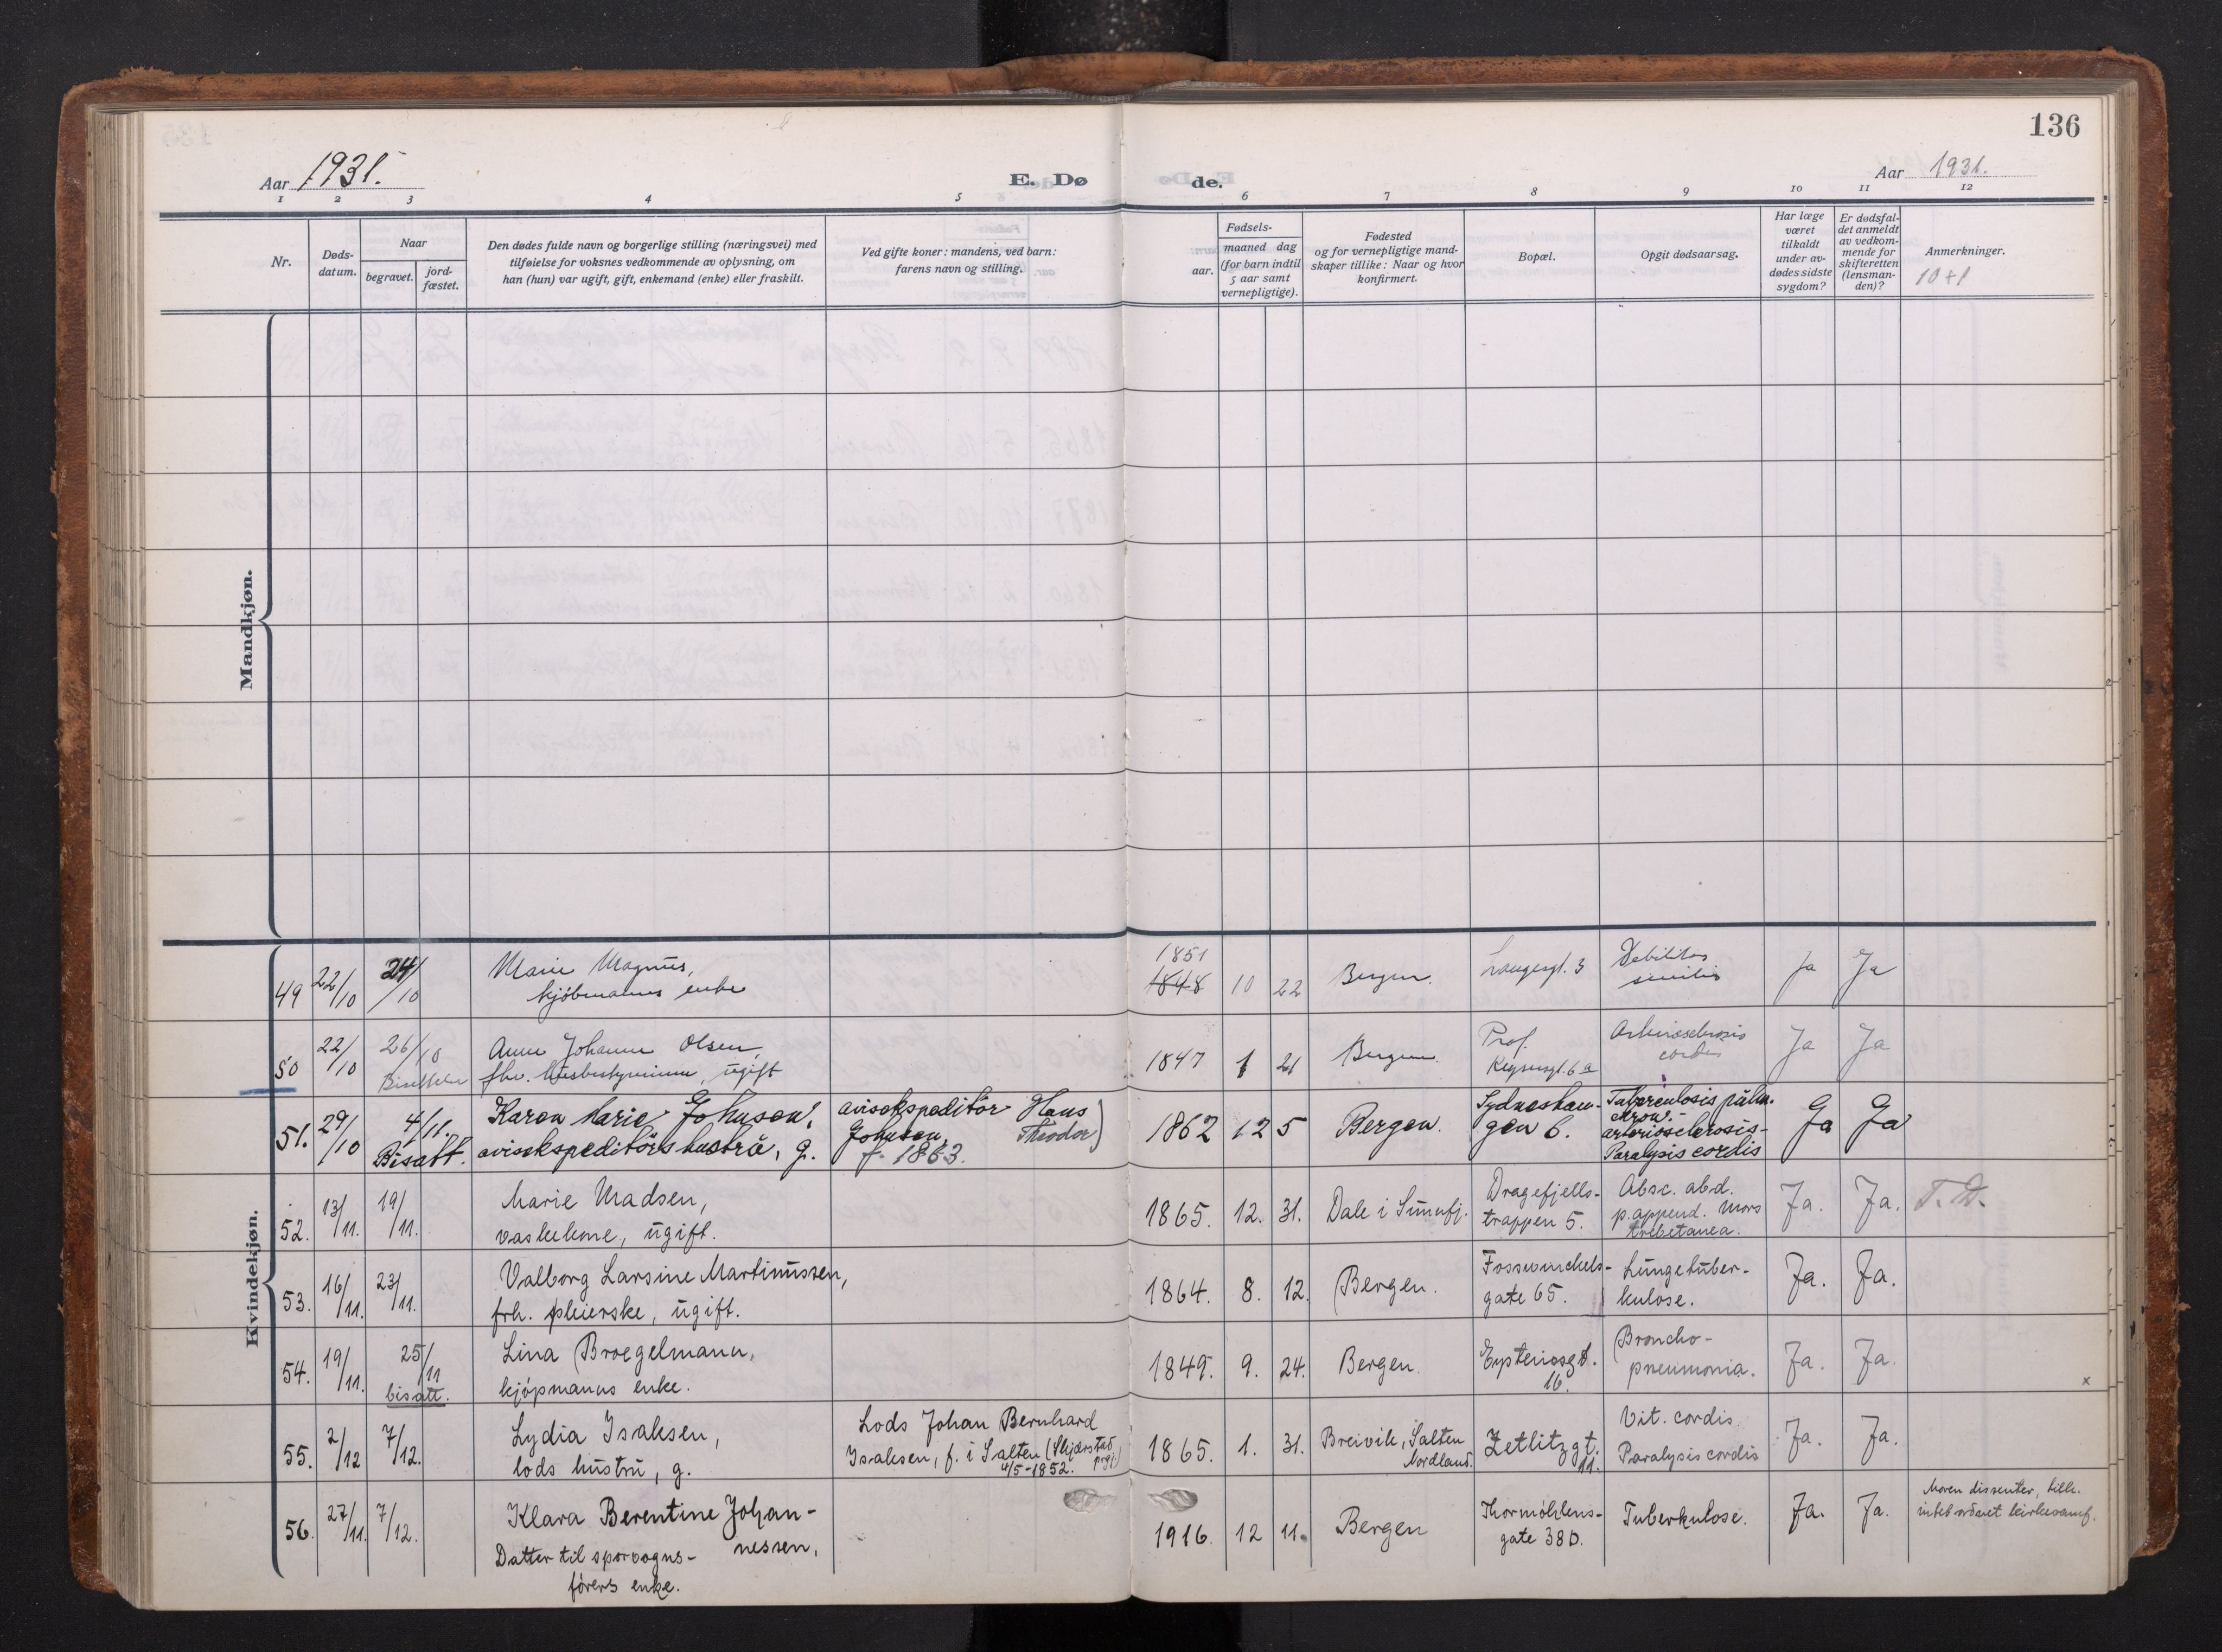 136
Aar 1931.
E. Dø
de.
Aar 1931.
1 2 3 4 5 6 7 8 9 10 11 12
Nr.
Døds-
datum.
Naar
begravet.
jord-
fæstet.
Den dødes fulde navn og borgerlige stilling (næringsvei) med
tilføielse for voksnes vedkommende av oplysning, om
han (hun) var ugift, gift, enkemand (enke) eller fraskilt.
Ved gifte koner: mandens, ved barn:
farens navn og stilling.
aar.
Fødsels-
maaned dag
(for barn indtil
5 aar samt
vernepligtige).
Fødested
og for vernepligtige mand-
skaper tillike: Naar og hvor
konfirmert.
Bopæl.
Opgit dødsaarsag.
Har læge
været
tilkaldt
under av-
dødes sidste
sygdom?
Er dødsfal-
det anmeldt
av vedkom-
mende for
skifteretten
(lensman-
den)?
Anmerkninger.
10+1
Mandkjøn.
Kvindekjøn.
49 22/10 24/10
Marie Magnus,
kjøbmanns enke
1851
1848 10 22
Bergen.
Langesgt. 3
Debilitas
senilis
Ja Ja
50 22/10 26/10
Bisettelse
Anne Johanne Olsen,
fhv. husbestyrerinne, ugift
1847 1 21
Bergen.
Prof.
Keysersgt. 6 a
Arteriosclerosis
cordis
Ja Ja
51. 29/10 4/11.
Bisatt.
Karen Marie Johnsen,
avisekspeditörs hustru, g.
avisekspeditör Hans
Johnsen, Theodor)
f. 1863.
1862 12 5
Bergen.
Sydneshau-
gen 6.
Tuberculosis pulm.
chron. -
arteriosclerosis -
Paralysis cordis
Ja Ja
52. 13/11. 19/11.
Marie Madsen,
vaskekone, ugift.
1865. 12. 31.
Dale i Sunnfj.
Dragefjells-
trappen 5.
Absc. abd.
p. append. mors
Ja. Ja.
53. 16/11. 23/11.
Valborg Larsine Martinussen,
frh. pleierske, ugift.
1864. 8. 12.
Bergen.
Fosswinckels-
gate 65.
Lungetuber-
kulose.
Ja. Ja.
54. 19/11. 25/11
bisatt.
Lina Broegelmann,
kjøpmanns enke.
1849. 9. 24.
Bergen.
16.
Broncho-
pneumonia.
Ja. Ja.
x
55. 2/12 7/12.
Lydia Isaksen,
lods hustru, g.
Lods Johan Bernhard
Isaksen, f. i Salten (Skjerstad
4/5-1852. prgj.)
1865. 1. 31.
Breivik, Salten
Nordland.
Zetlitzgt.
11.
Vit. cordis
Paralysis cordis
Ja. Ja.
56. 27/11. 7/12.
Klara Berentine Johan-
nessen,
Datter til sporvogns-
førers enke.
1916. 12 11.
Bergen
Thormøhlens-
gate 38 D.
Tuberkulose.
Ja. Ja.
Moren dissenter, tilh.
intet ordnet kirkesamf.